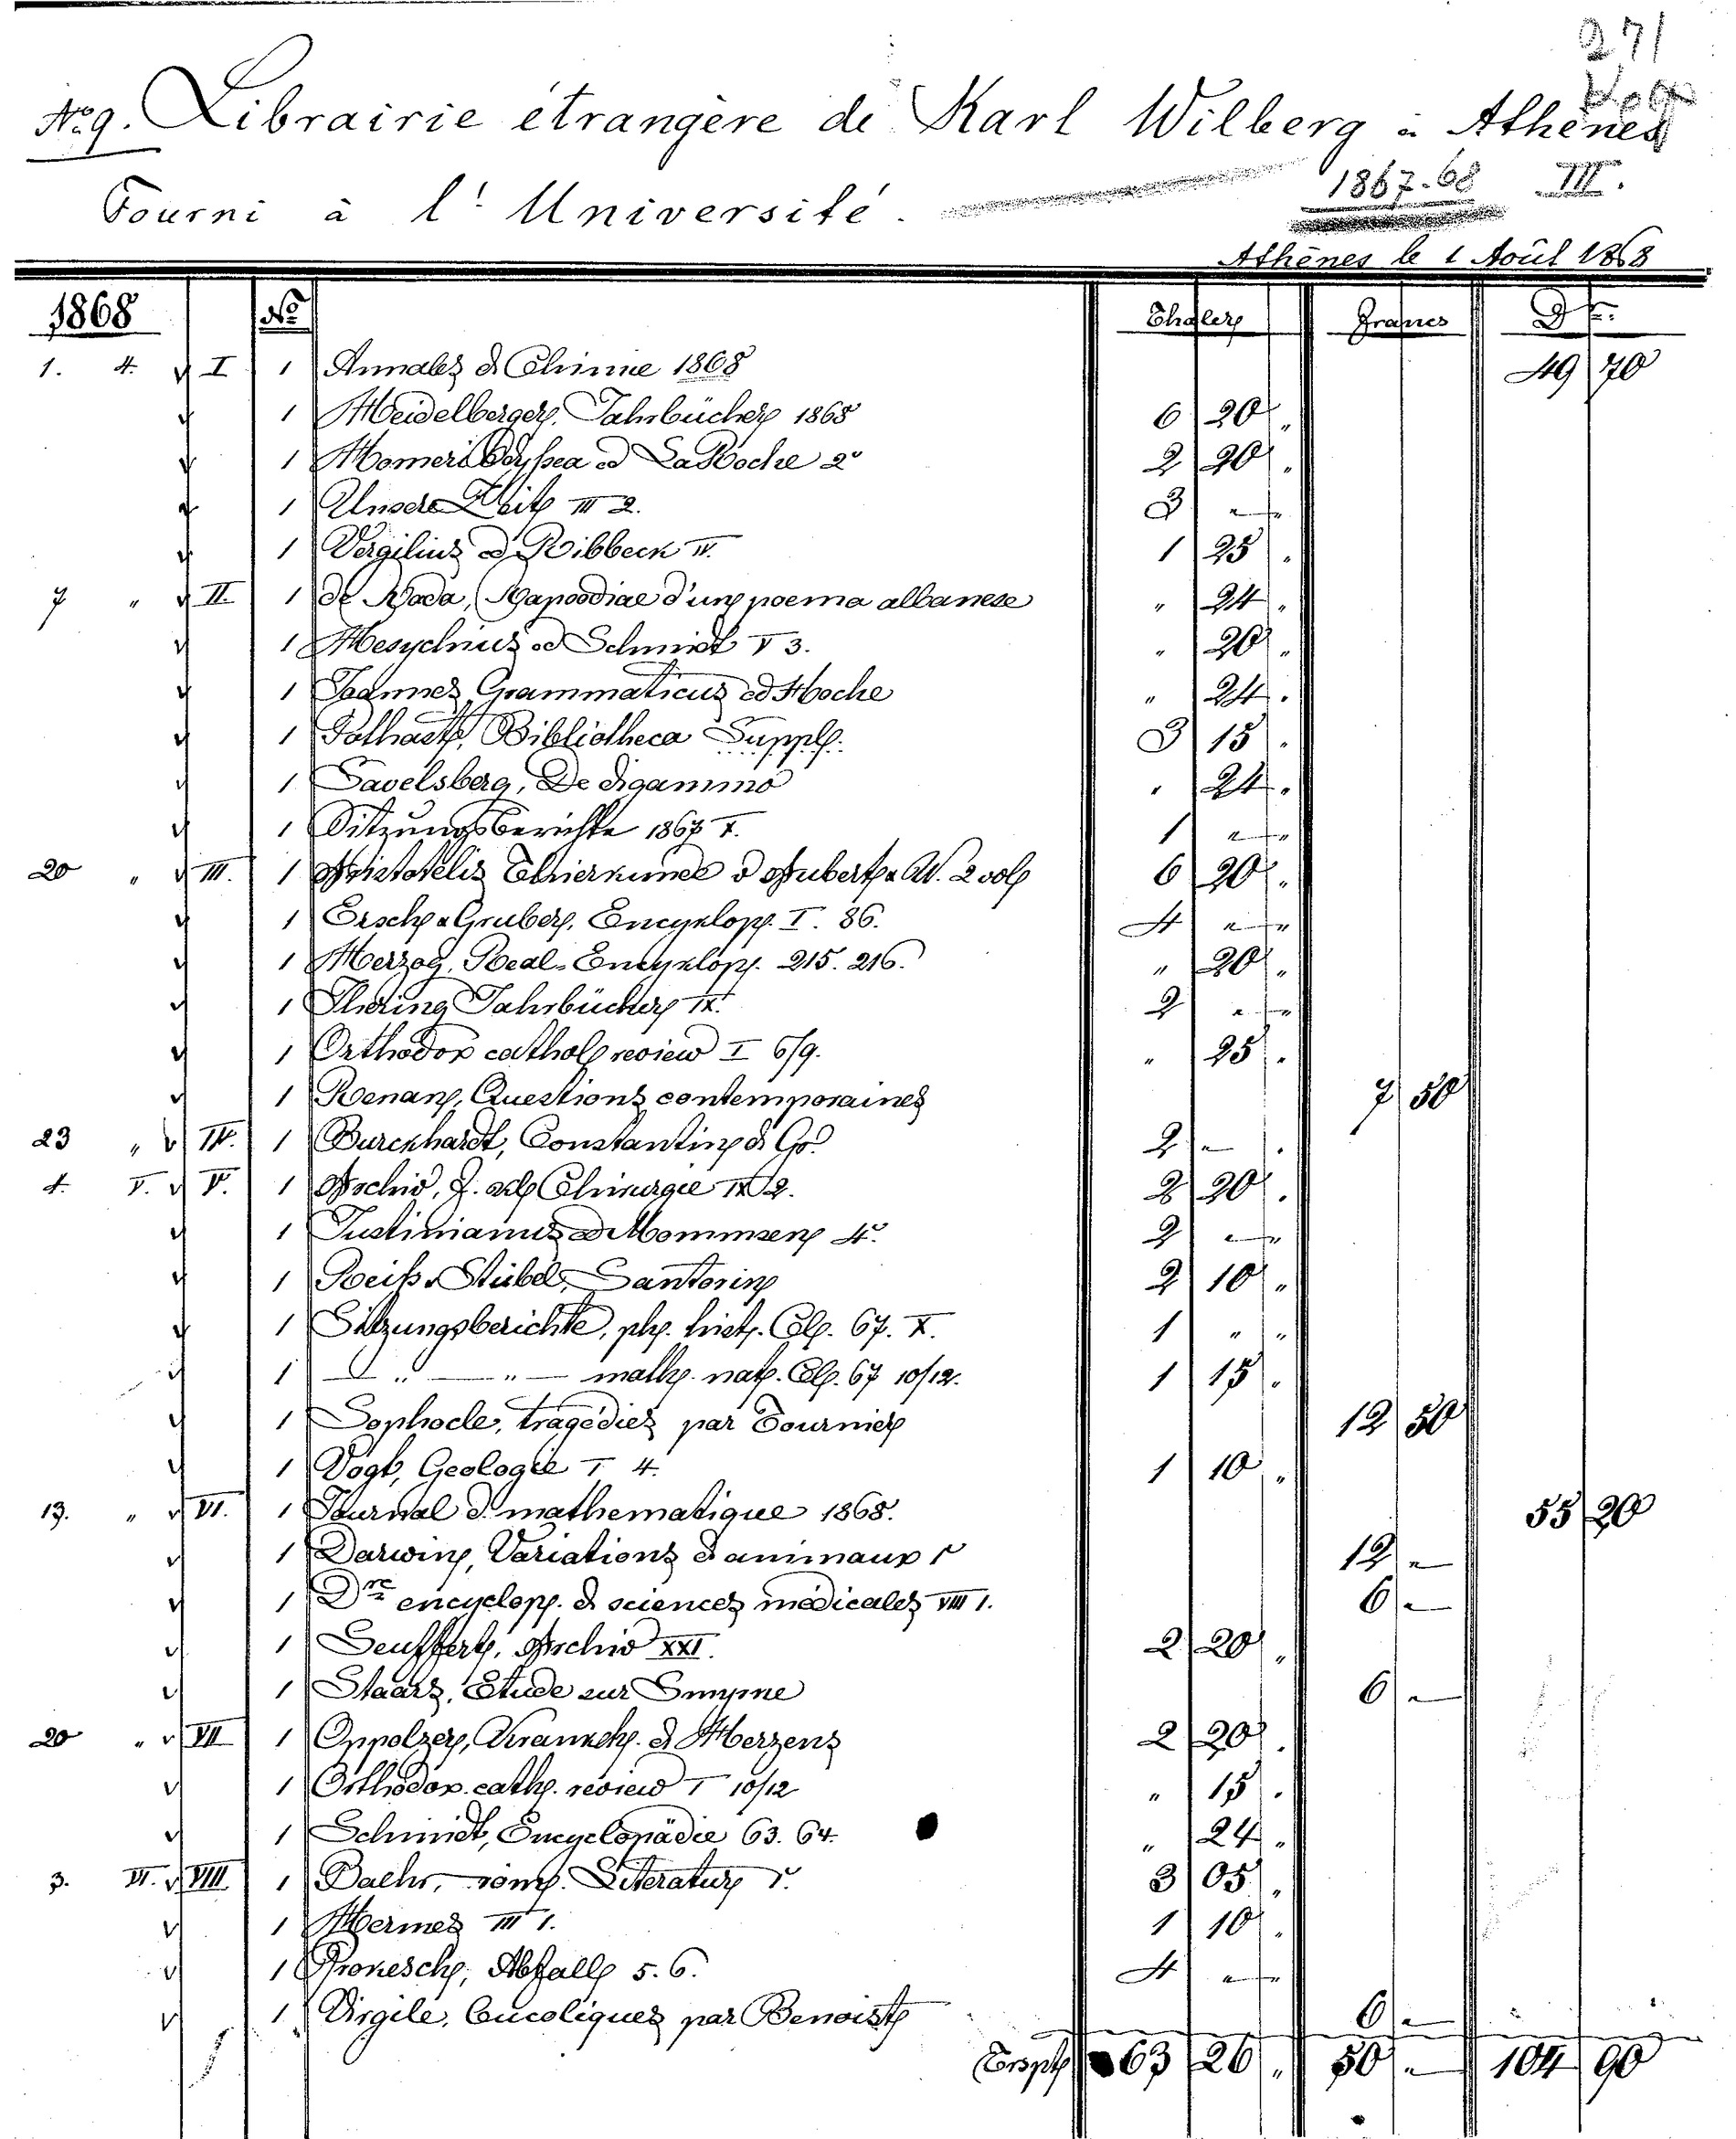 271
No 9. Librairie étrangère de Karl Wilberg à Athènes
Fourni à l'Université. 1867-68 III.
Athènes le 1 Août 1868
1868 No Thaler Francs Dr.
1. 4. v I 1 Annales d Chimie 1868 49 70
v 1 Heidelberger Jahrbücher 1868 6 20 "
v 1 Homeri Odyssea ed La Roche 2° 2 20 "
v 1 Unsere Zeit III 2. 3 " "
v 1 Vergilius ed Ribbeck IV. 1 25 "
7 " v II. 1 de Rada, Rapsodiae d'un poema albanese " 24 "
v 1 Hesychius ed Schmidt V 3. " 20 "
v 1 Joannes Grammaticus ed Hoche " 24 "
v 1 Potthast, Bibliotheca Suppl. 3 15 "
v 1 Savelsberg, De digammo " 24 "
v 1 Sitzungsberichte 1867 I. 1 " "
20 " v III. 1 Aristotelis Thierkunde v Aubert u W. 2 vol 6 20 "
v 1 Ersch u Gruber, Encyklop. I. 86. 4 " "
v 1 Herzog, Real-Encyklop. 215. 216. " 20 "
v 1 Ihering Jahrbücher IX. 2 " "
v 1 Orthodox cathol review I 6/9. " 25 "
v 1 Renan, Questions contemporaines 7 50
23 " v IV. 1 Burckhardt, Constantin d Gr. 2 - "
4. V. v V. 1 Archiv, f. kl Chirurgie IX 2. 2 20 "
v 1 Justinianus ed Mommsen 4. 2 " "
v 1 Reiß u Stübel, Santorin 2 10 "
v 1 Sitzungsberichte, ph. hist. Cl. 67. X. 1 " "
v 1 — " — " — math. nat. Cl. 67 10/12. 1 15 "
v 1 Sophocle, tragédies par Tournier 12 50
v 1 Vogt, Geologie I 4. 1 10 "
13. " v VI. 1 Journal d. mathematique 1868. 55 20
v 1 Darwin, Variations d animaux I 12 -
v 1 Dre encyclop. d sciences médicales VIII 1. 6 -
v 1 Seuffert, Archiv XXI. 2 20 "
v 1 Staars, Étude sur Smyrne 6 -
20 " v VII 1 Oppolzer, Krankh. d Herzens 2 20 "
v 1 Orthodox cath. review I 10/12 " 15 "
v 1 Schmidt, Encyclopädie 63. 64. " 24 "
3. VI. v VIII 1 Baehr, röm. Literatur I. 3 05 "
v 1 Hermes III 1. 1 10 "
v 1 Prokesch, Abfall 5. 6. 4 " "
v 1 Virgile, bucoliques par Benoist 6 -
63 26 " 50 - 104 90